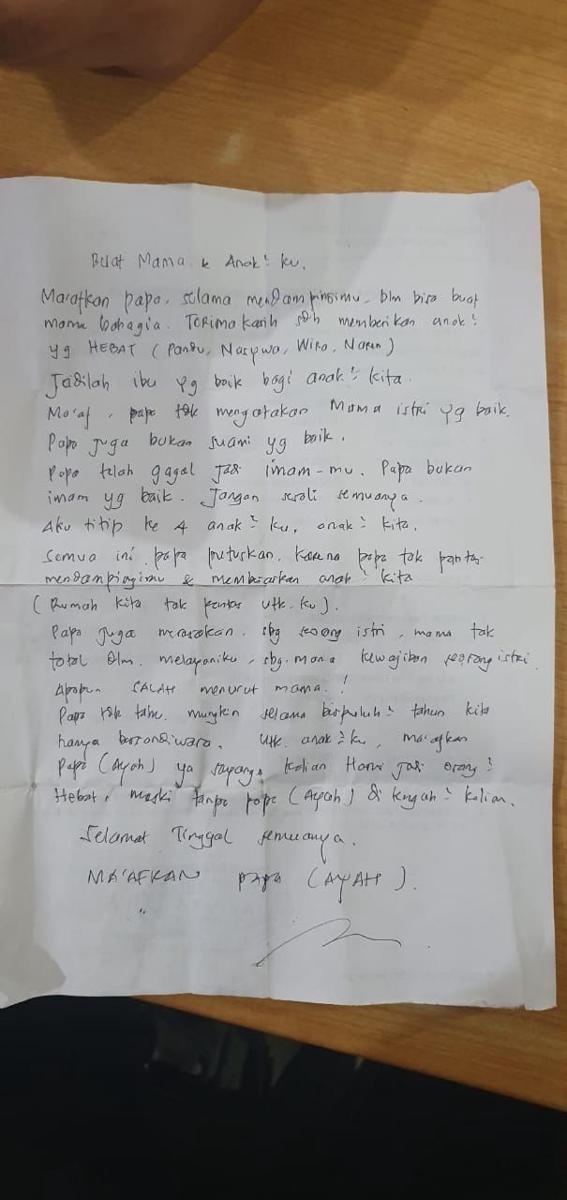 Buat Mama & Anak² ku.
Maafkan papa, selama mendampingimu, blm bisa buat
mama bahagia. Terima kasih sdh memberikan anak²
yg HEBAT (Pandu, Nasywa, Wira, Naren)
Jadilah ibu yg baik bagi anak² kita.
Ma'af, papa tdk mengatakan Mama istri yg baik.
Papa juga bukan suami yg baik.
Papa telah gagal jadi imam-mu. Papa bukan
imam yg baik. Jangan sesali semuanya.
Aku titip ke 4 anak² ku, anak² kita.
Semua ini papa putuskan. Karena papa tak pantas
mendampingimu & membesarkan anak² kita
(Rumah kita tak pantas utk. ku).
Papa juga merasakan. sbg seorang istri, mama tak
total dlm. melayaniku, sbg. mana kewajiban seorang istri.
Apapun SALAH menurut mama. !
Papa tdk tahu, mungkin selama berpuluh² tahun kita
hanya bersandiwara. Utk. anak² ku, ma'afkan
Papa (Ayah) ya sayang, kalian Harus jadi orang²
Hebat, meski tanpa papa (Ayah) di tengah² kalian.
Selamat Tinggal semuanya.
MA'AFKAN PAPA (AYAH).